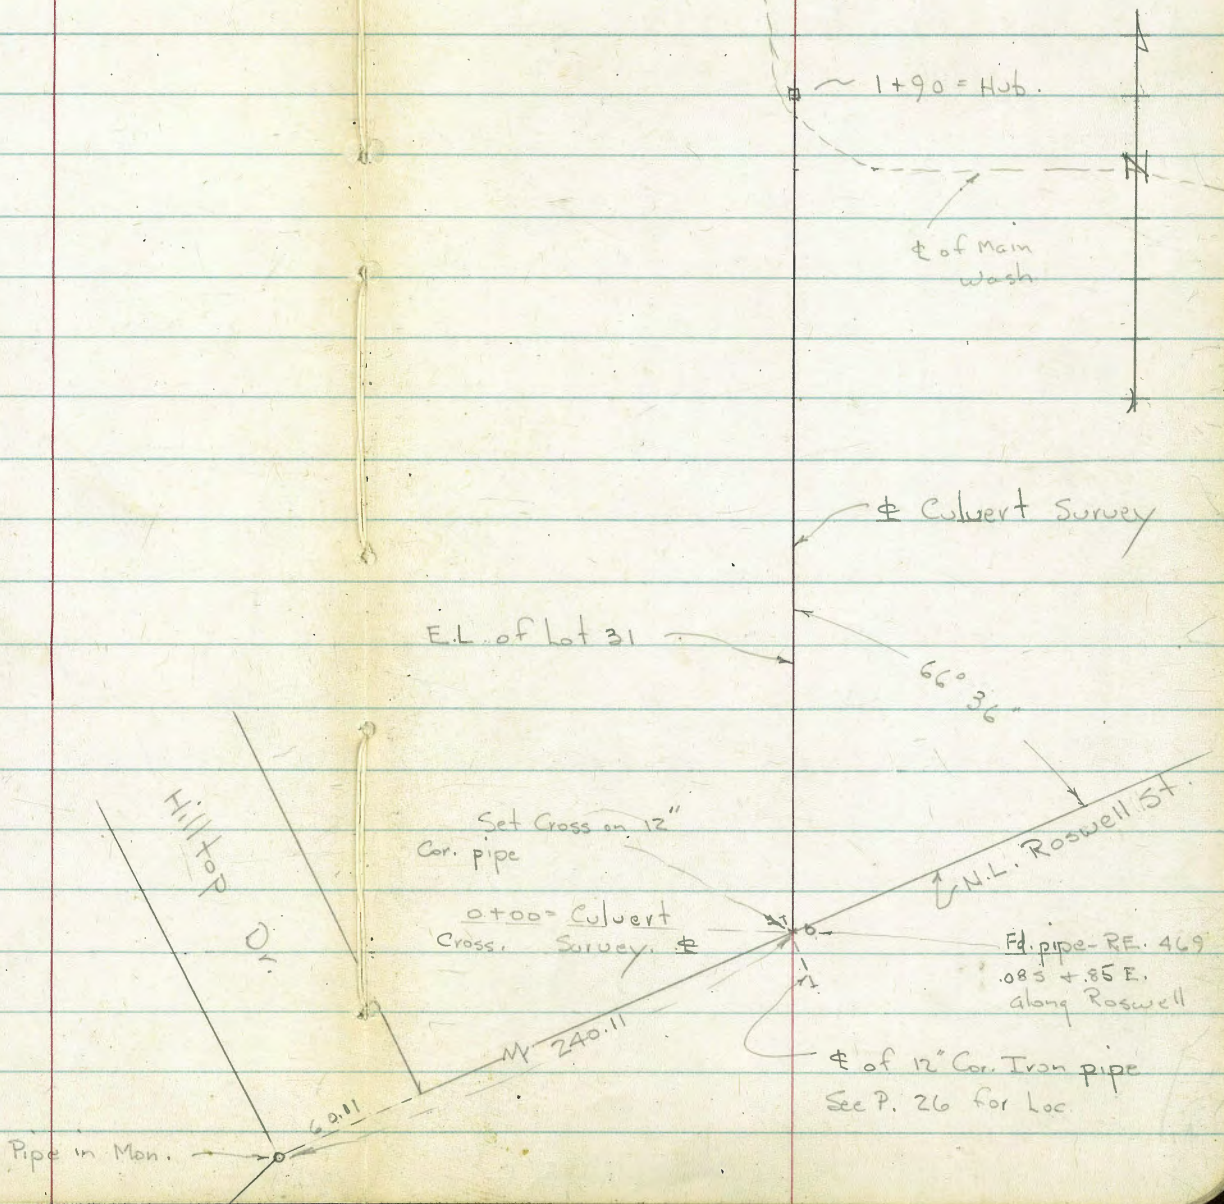 1+90 = Hub.
N
℄ of Main
wash
℄ Culvert Survey
E.L. of Lot 31
66° 36"
Hilltop
Dr.
N.L. Roswell St.
Set Cross on 12"
Cor. pipe
0+00= Culvert
Cross. Survey. ℄
Fd. pipe-RE. 469
.08S + .85 E.
along Roswell
M 240.11
℄ of 12" Cor. Iron pipe
See P. 26 for Loc
60.11
Pipe in Mon.